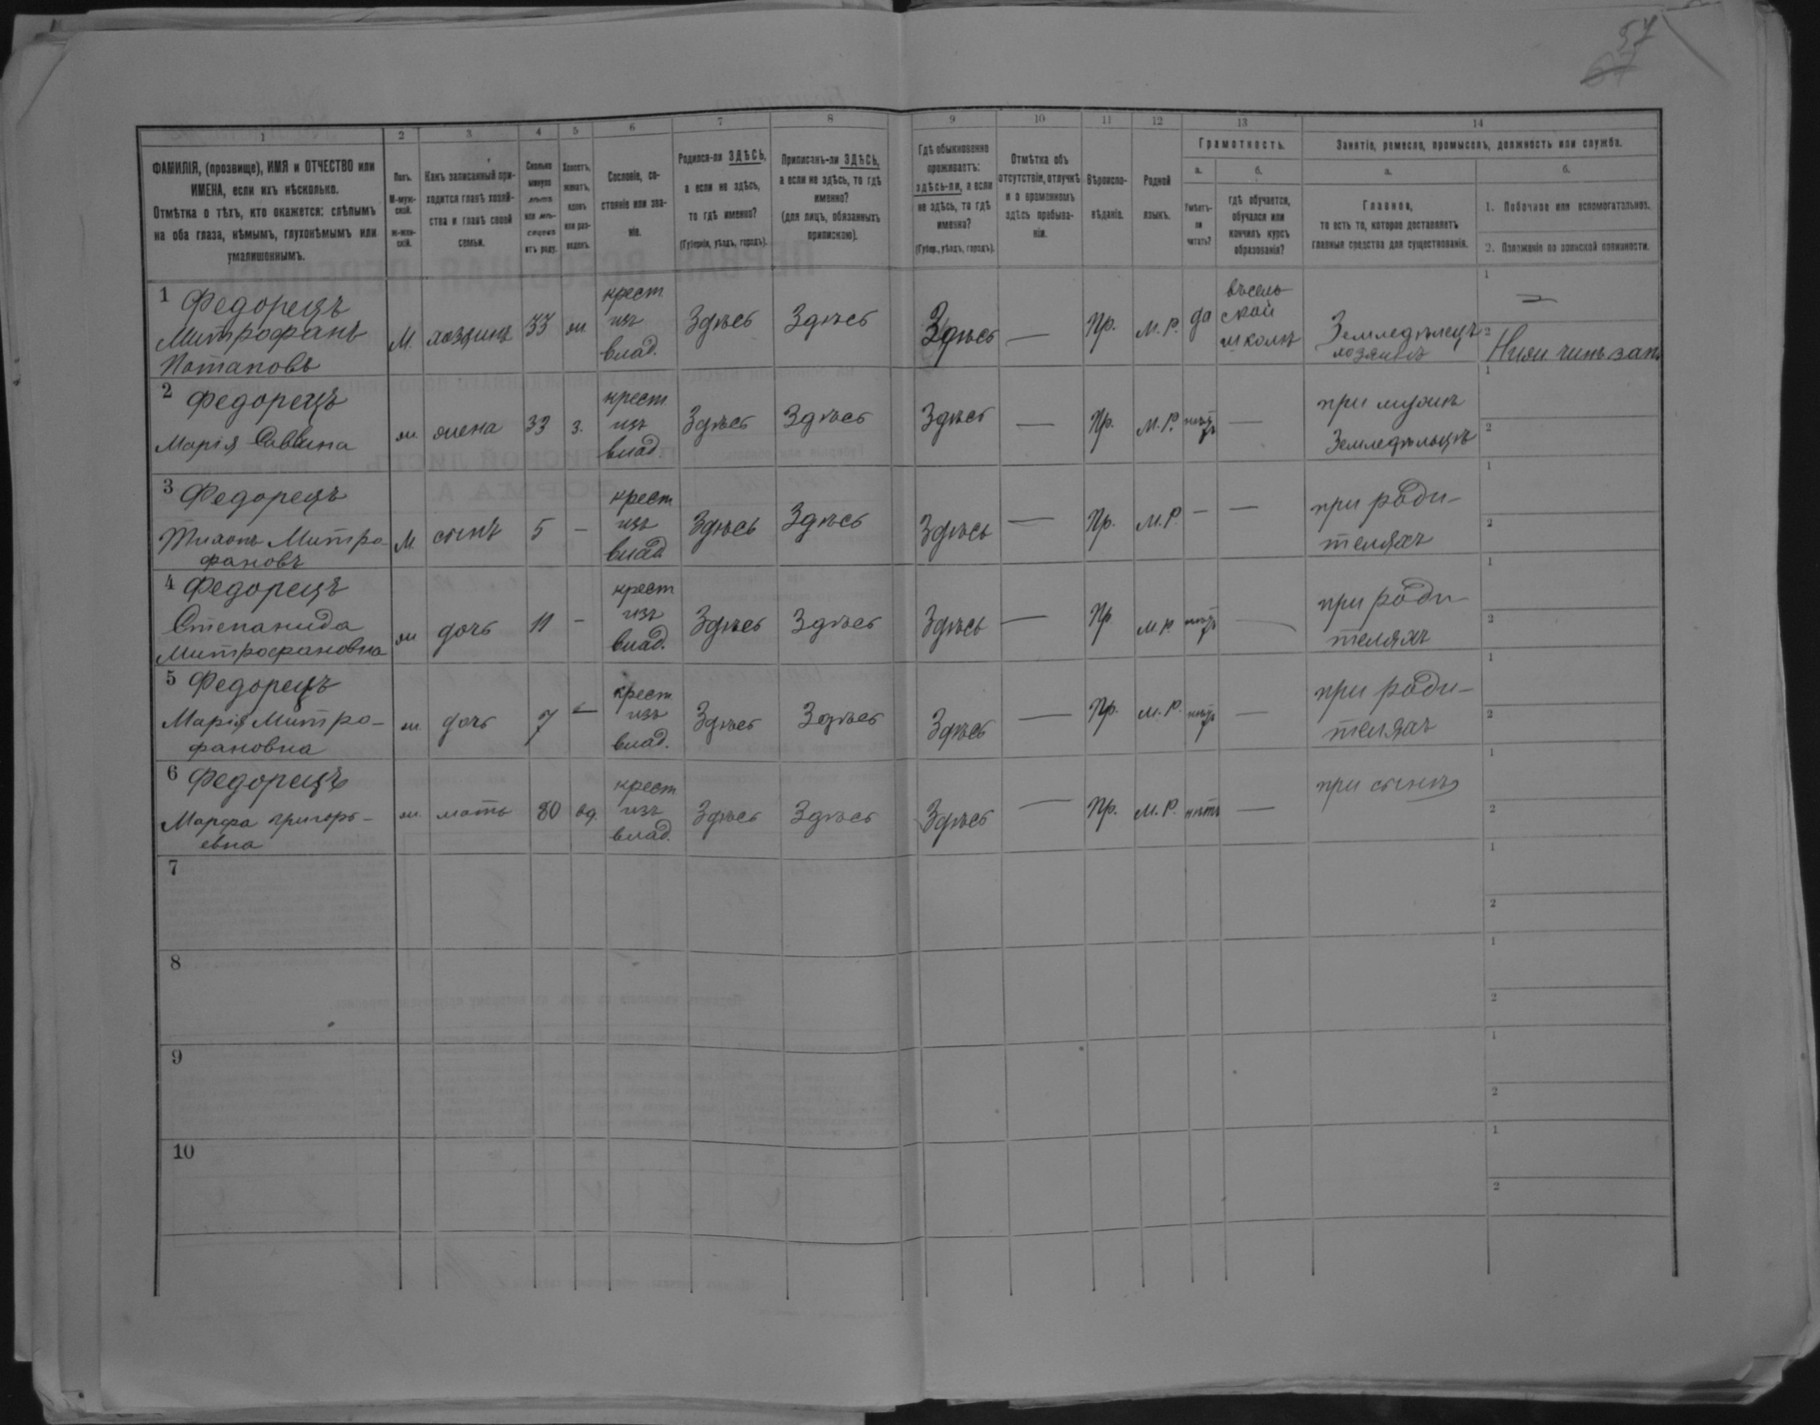 57
67
1 2 3 4 5 6 7 8 9 10 11 12 13 14
ФАМИЛІЯ, (прозвище), ИМЯ и ОТЧЕСТВО или
ИМЕНА, если ихъ нѣсколько.
Отмѣтка о тѣхъ, кто окажется: слѣпымъ
на оба глаза, нѣмымъ, глухонѣмымъ или
умалишеннымъ.
Полъ.
М-муж-
ской.
Ж-жен-
скій.
Какъ записанный при-
ходится главѣ хозяй-
ства и главѣ своей
семьи.
Сколько
минуло
лѣтъ
или мѣ-
сяцевъ
отъ роду.
Холостъ,
женатъ,
вдовъ
или раз-
веденъ.
Сословіе, со-
стояніе или зва-
ніе.
Родился-ли ЗДѢСЬ,
а если не здѣсь,
то гдѣ именно?
(Губернія, уѣздъ, городъ).
Приписанъ-ли ЗДѢСЬ,
а если не здѣсь, то гдѣ
именно?
(для лицъ, обязанныхъ
припискою).
Гдѣ обыкновенно
проживаетъ:
здѣсь-ли, а если
не здѣсь, то гдѣ
именно?
(Губер., уѣздъ, городъ).
Отмѣтка объ
отсутствіи, отлучкѣ
и о временномъ
здѣсь пребыва-
ніи.
Вѣроиспо-
вѣданіе.
Родной
языкъ.
Грамотность.
а.
Умѣетъ-
ли
читать?
б.
гдѣ обучается,
обучался или
кончилъ курсъ
образованія?
Занятіе, ремесло, промыселъ, должность или служба.
а.
Главное,
то есть то, которое доставляетъ
главныя средства для существованія.
б.
1. Побочное или вспомогательное.
2. Положеніе по воинской повинности.
1 Федорецъ
Митрофанъ
Потаповъ
М. хозяинъ 33 ж.
крест
изъ
влад.
Здѣсь Здѣсь Здѣсь — Пр. М.Р. да
въ сель
ской
школѣ
Земледѣлецъ
хозяинъ
1
2 Нижн чинъ зап.
2 Федорецъ
Марія Саввина
ж. жена 33 з.
крест
изъ
влад.
Здѣсь Здѣсь Здѣсь — Пр. М.Р. нѣтъ —
при мужѣ
Земледѣльцѣ
1
2
3 Федорецъ
Тихонъ Митро
фановъ
М. сынъ 5 —
крест
изъ
влад
Здѣсь Здѣсь Здѣсь — Пр. М.Р. — —
при роди-
теляхъ
1
2
4 Федорецъ
Степанида
Митрофановна
ж. дочь 11 —
крест
изъ
влад.
Здѣсь Здѣсь Здѣсь — Пр М.Р. нѣтъ —
при роди-
теляхъ
1
2
5 Федорецъ
Марія Митро-
фановна
ж. дочь 7 —
крест
изъ
влад.
Здѣсь Здѣсь Здѣсь — Пр. М.Р. нѣтъ —
при роди-
теляхъ
1
2
6 Федорецъ
Марфа Григорь-
евна
ж. мать 80 вд.
крест
изъ
влад.
Здѣсь Здѣсь Здѣсь — Пр. М.Р. нѣтъ —
при сынѣ
1
2
7
1
2
8
1
2
9
1
2
10
1
2